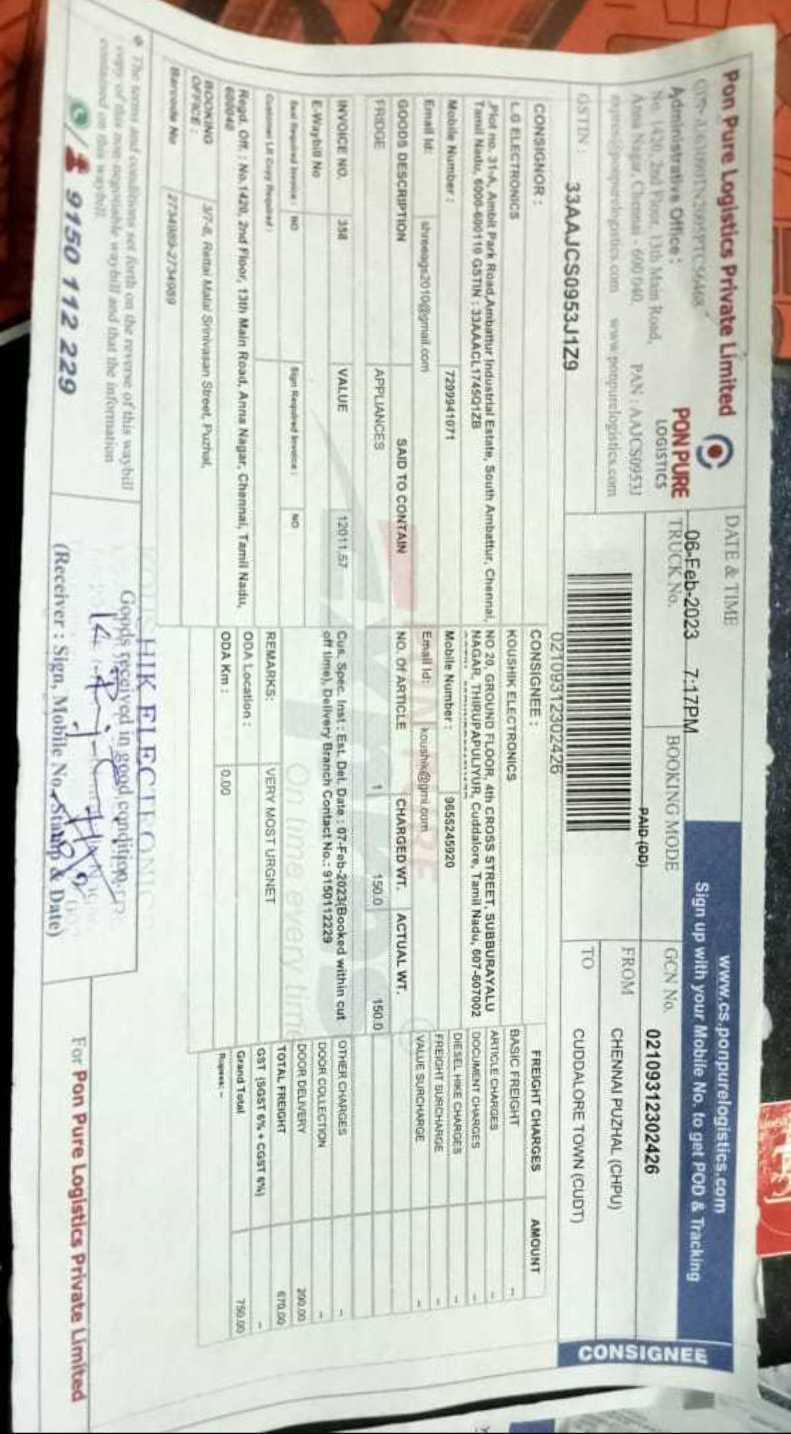 Pon Pure Logistics Private Limited
Administrative Office :
No. 1420, 2nd Floor, 13th Main Road,
Anna Nagar, Chennai - 600 040. PAN : AAJCS0953J
express@ponpurelogistics.com www.ponpurelogistics.com
PON PURE
LOGISTICS
GSTIN : 33AAJCS0953J1Z9
DATE & TIME
06-Feb-2023 7:17PM
TRUCK No.
BOOKING MODE
PAID (DD)
02109312302426
www.cs.ponpurelogistics.com
Sign up with your Mobile No. to get POD & Tracking
GCN No. 02109312302426
FROM CHENNAI PUZHAL (CHPU)
TO CUDDALORE TOWN (CUDT)
CONSIGNEE
CONSIGNOR :
L.G ELECTRONICS
Plot no. 31-A, Ambit Park Road,Ambattur Industrial Estate, South Ambattur, Chennai,
Tamil Nadu, 6000-600116 GSTIN : 33AAACL1745Q1ZB
Mobile Number : 7299941071
Email Id: shreeags2010@gmail.com
CONSIGNEE :
KOUSHIK ELECTRONICS
NO 20, GROUND FLOOR, 4th CROSS STREET, SUBBURAYALU
NAGAR, THIRUPAPULIYUR, Cuddalore, Tamil Nadu, 607-607002
Mobile Number : 9655245920
Email Id: koushik@gml.com
GOODS DESCRIPTION SAID TO CONTAIN NO. OF ARTICLE CHARGED WT. ACTUAL WT.
FRIDGE APPLIANCES 1 150.0 150.0
INVOICE NO. 358 VALUE 12011.57
E-Waybill No
Seal Required Invoice : NO Sign Required Invoice : NO
Customer LR Copy Required :
Cus. Spec. Inst : Est. Del. Date : 07-Feb-2023(Booked within cut
off time), Delivery Branch Contact No.: 9150112229
REMARKS: VERY MOST URGNET
ODA Location :
ODA Km : 0.00
Regd. Off. : No.1420, 2nd Floor, 13th Main Road, Anna Nagar, Chennai, Tamil Nadu,
600040
BOOKING
OFFICE : 3/7-8, Rettai Malai Srinivasan Street, Puzhal,
Barcode No 2734989-2734989
FREIGHT CHARGES AMOUNT
BASIC FREIGHT --
ARTICLE CHARGES --
DOCUMENT CHARGES --
DIESEL HIKE CHARGES --
FREIGHT SURCHARGE --
VALUE SURCHARGE --
OTHER CHARGES --
DOOR COLLECTION --
DOOR DELIVERY 200.00
TOTAL FREIGHT 670.00
GST (SGST 6% + CGST 6%) --
Grand Total 750.00
Rupees: --
On time every time
The terms and conditions set forth on the reverse of this waybill
copy of this non negotiable waybill and that the information
contained on this waybill.
9150 112 229
Goods received in good condition.
(Receiver : Sign, Mobile No., Stamp & Date)
For Pon Pure Logistics Private Limited